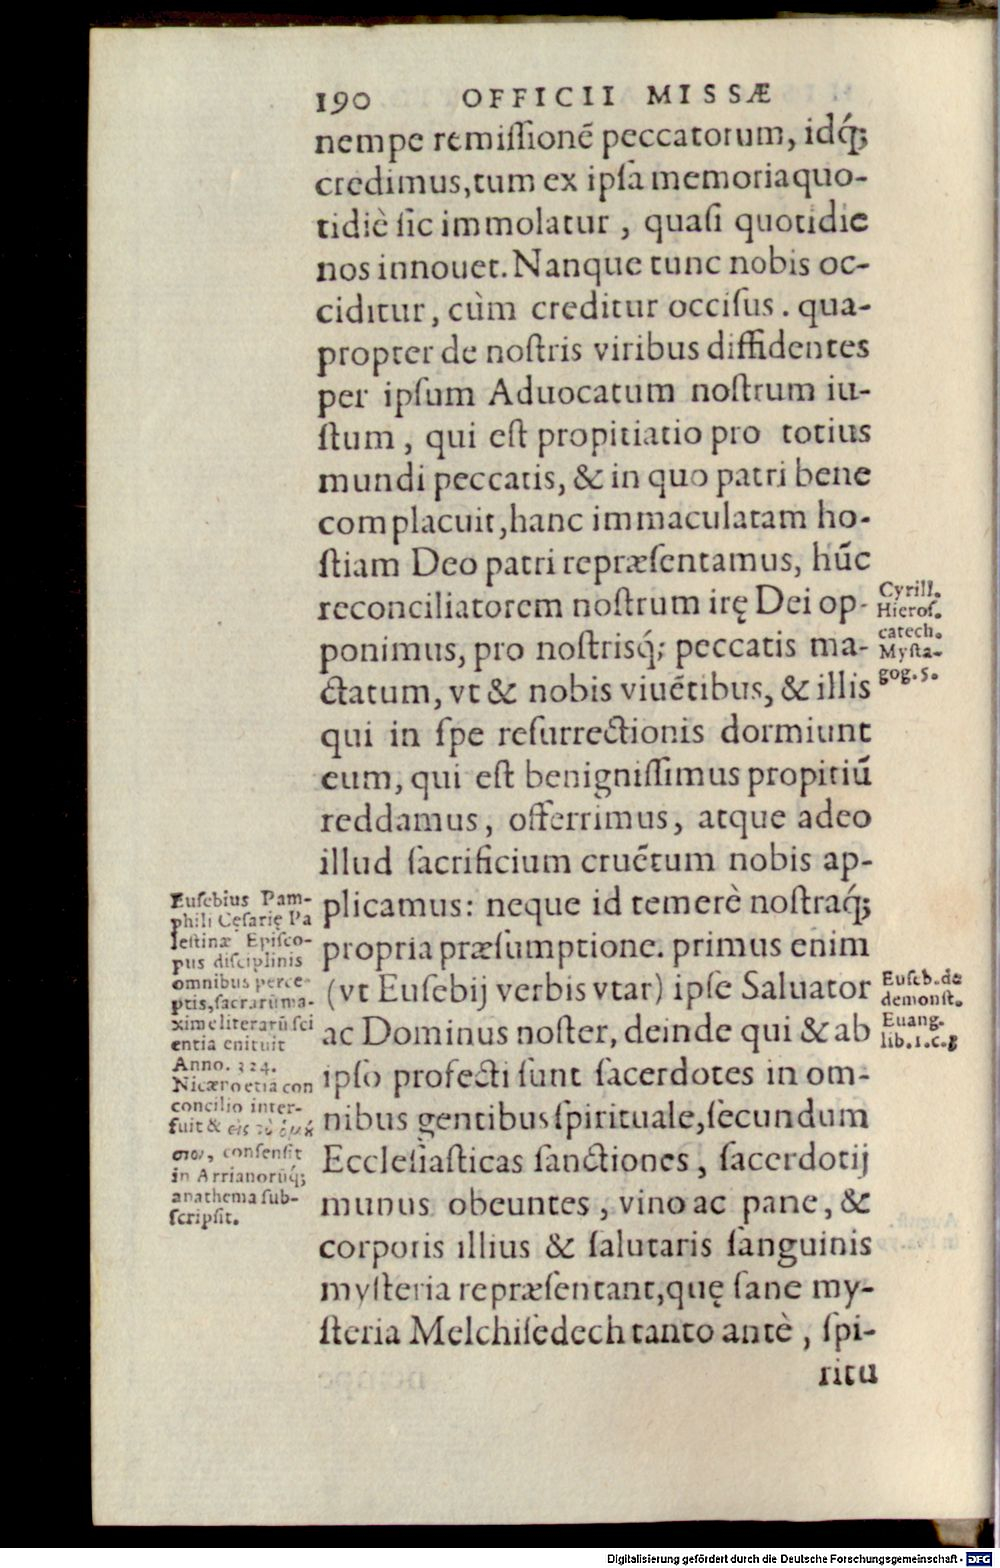 190 OFFICII MISSÆ
nempe remiſſionẽ peccatorum, idq́;
credimus, tum ex ipſa memoria quo-
tidiè ſic immolatur, quaſi quotidie
nos innouet. Nanque tunc nobis oc-
ciditur, cùm creditur occiſus. qua-
propter de noſtris viribus diffidentes
per ipſum Aduocatum noſtrum iu-
ſtum, qui eſt propitiatio pro totius
mundi peccatis, & in quo patri bene
complacuit, hanc immaculatam ho-
ſtiam Deo patri repræſentamus, hũc
reconciliatorem noſtrum irę Dei op-
ponimus, pro noſtrisq́; peccatis ma-
ctatum, vt & nobis viuẽtibus, & illis
qui in ſpe reſurrectionis dormiunt
eum, qui eſt benigniſſimus propitiũ
reddamus, offerrimus, atque adeo
illud ſacrificium cruẽtum nobis ap-
plicamus: neque id temerè noſtraq́;
propria præſumptione. primus enim
(vt Euſebij verbis vtar) ipſe Saluator
ac Dominus noſter, deinde qui & ab
ipſo profecti ſunt ſacerdotes in om-
nibus gentibus ſpirituale, ſecundum
Eccleſiaſticas ſanctiones, ſacerdotij
munus obeuntes, vino ac pane, &
corporis illius & ſalutaris ſanguinis
myſteria repræſentant, quę ſane my-
ſteria Melchiſedech tanto antè, ſpi-
ritu
Cyrill.
Hieroſ.
catech.
Myſta-
gog. 5.
Euſebius Pam-
phili Cęſarię Pa
leſtinæ Epiſco-
pus diſciplinis
omnibus perce-
ptis, ſacrarũ ma-
xime literarũ ſci
entia enituit
Anno. 324.
Nicæno etiã con
concilio inter-
fuit &
conſenſit
in Arrianorũq́;
anathema ſub-
ſcripſit.
Euſeb. de
demonſt.
Euang.
lib. 1. c.
Digitalisierung gefördert durch die Deutsche Forschungsgemeinschaft - DFG